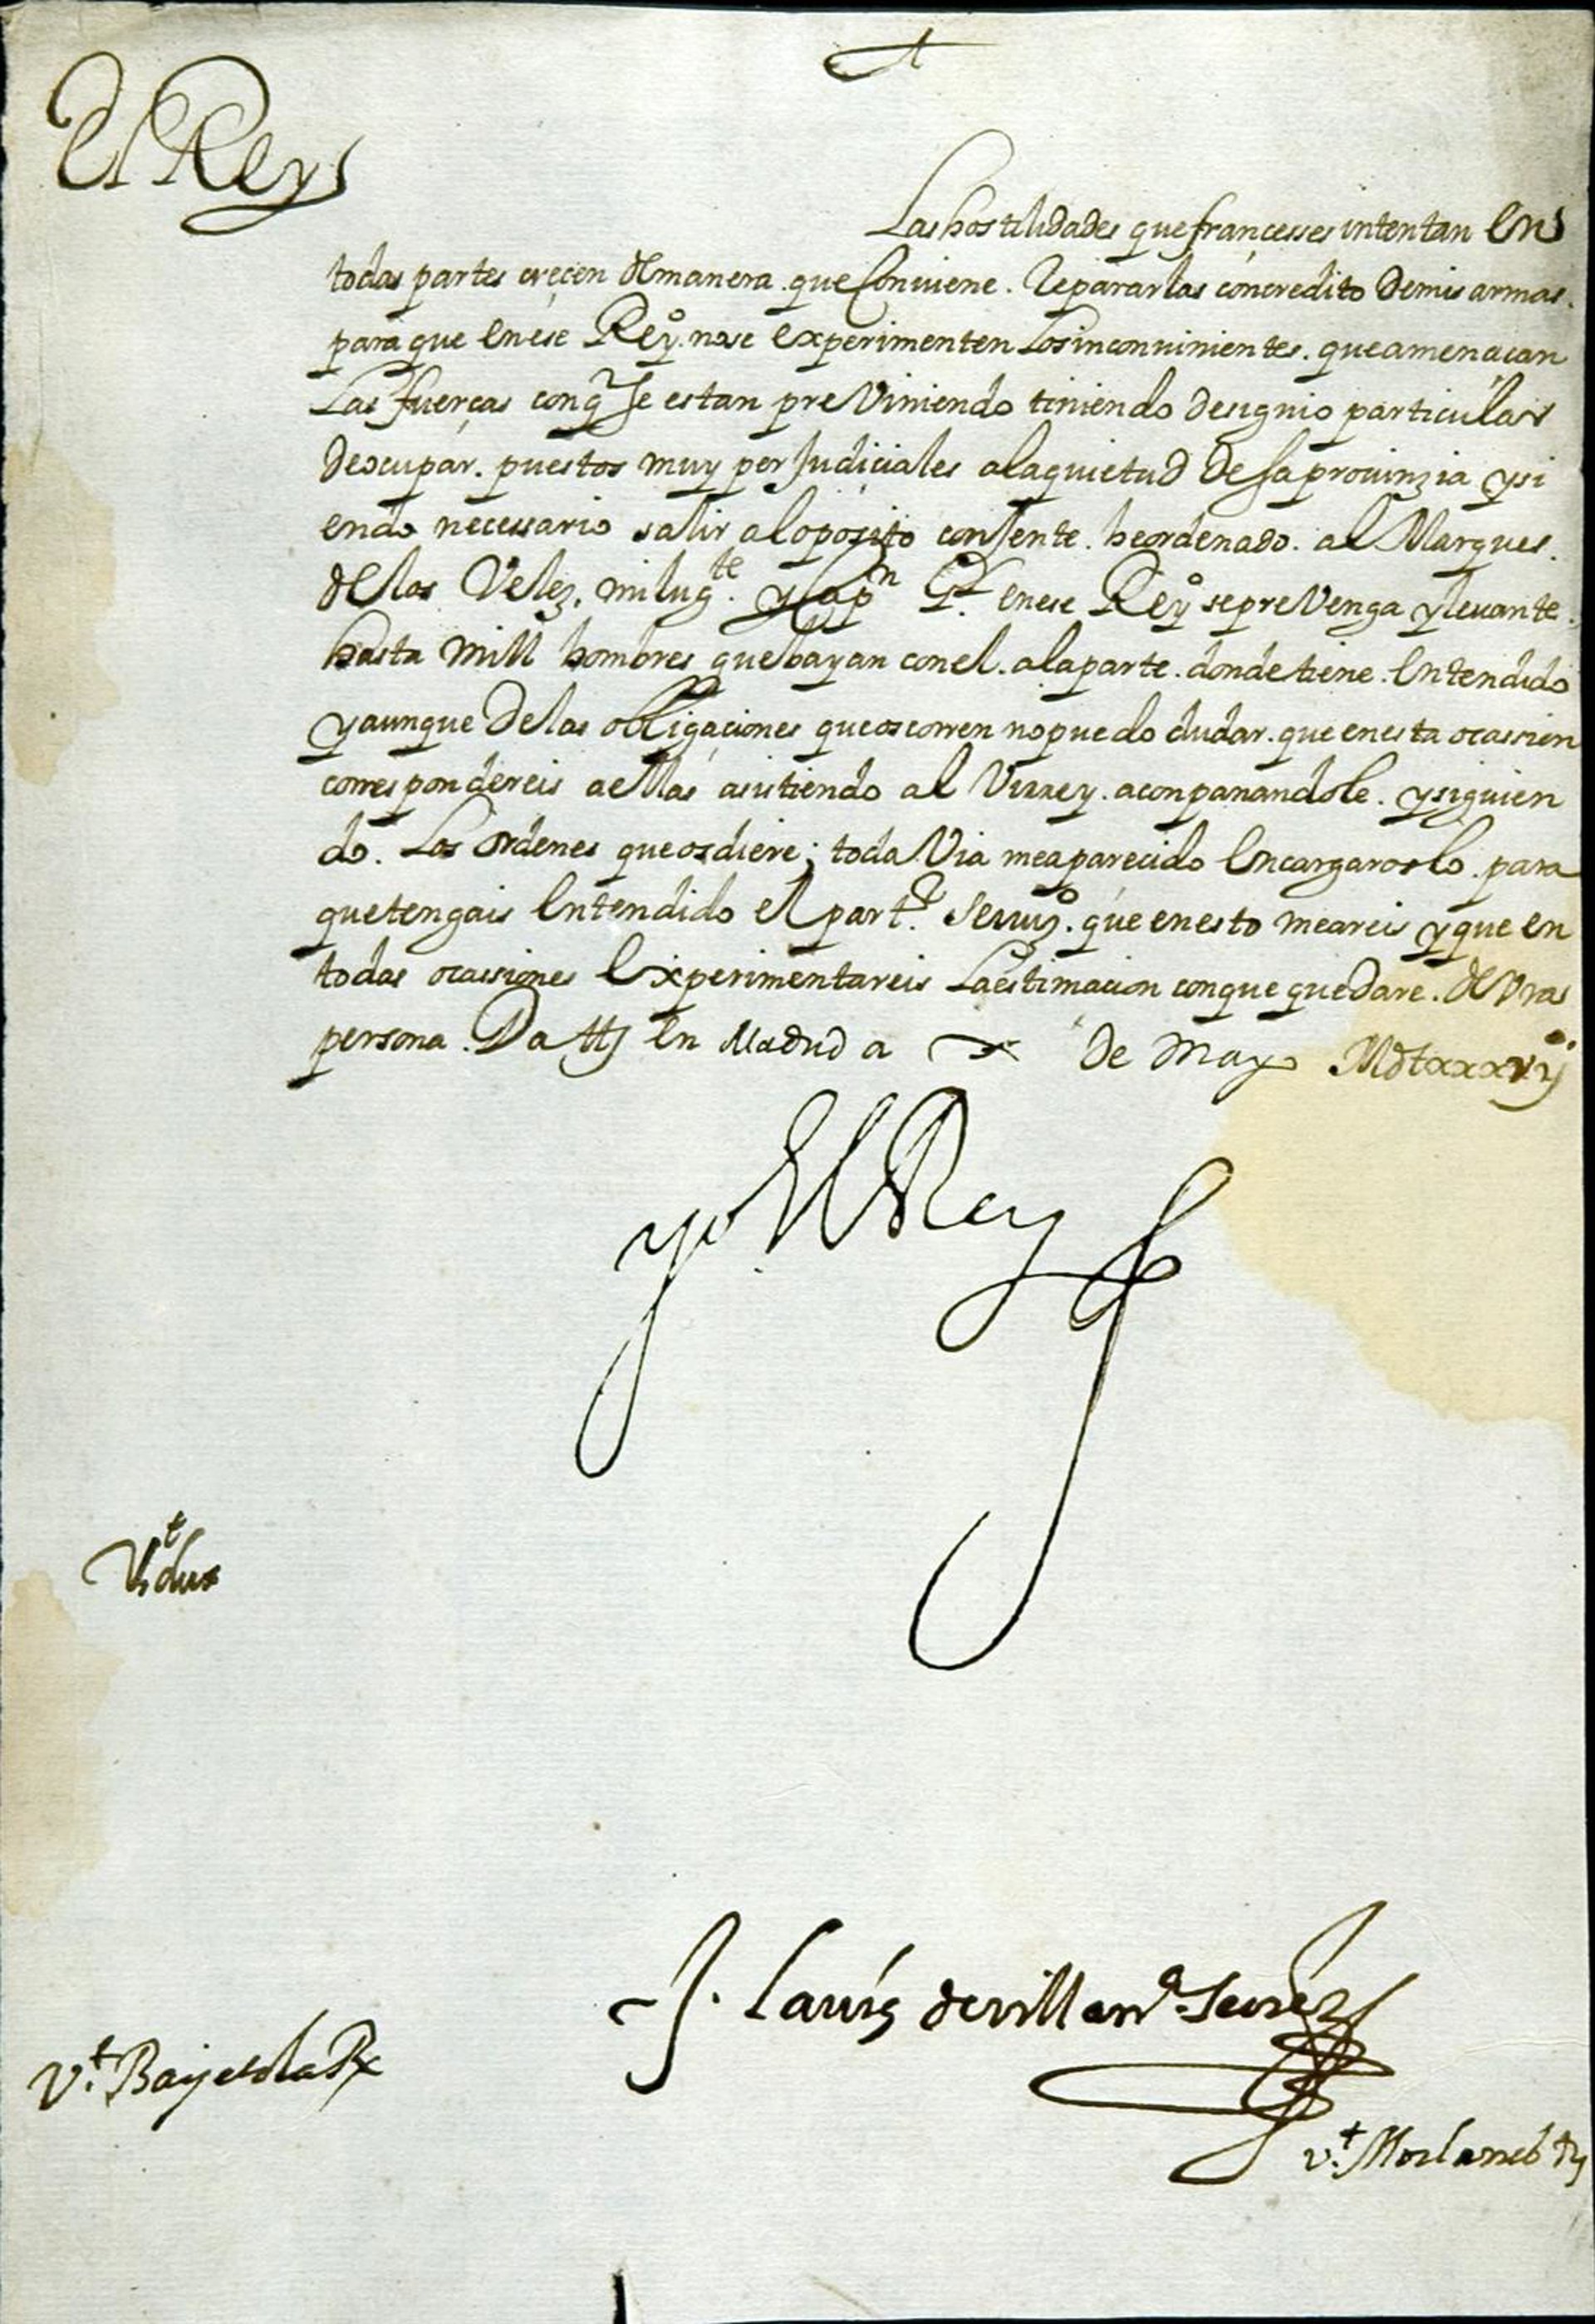 El Rey
Las hostilidades que francesses intentan En
todas partes creçen de manera que Conviene. Repararlas con credito de mis armas.
para que en ese Reyo. no se experimenten Los inconvinientes. que amenaçan
Las fuerças con q se estan preViniendo tiniendo designio particular
de ocupar. puestos muy perJudiciales a la quietud de sa provinzia y si
endo necessario salir al oposito con Jente. he ordenado. al Marques.
de los Velez, mi lugte. y Capn Gl. en ese Reyo se preVenga y levante.
hasta mill hombres que bayan con el. a la parte. donde tiene. Entendido
y aunque de las obligaçiones que os corren no puedo dudar. que en esta ocassion
correspondereis a ellas asistiendo al Virrey. aconpanandole. y siguien
do. Las ordenes que os diere; toda Via me a parecido Encargaroslo. para
que tengais Entendido el partr. servizo. que en esto me areis y que en
todas ocassiones Experimentareis La estimacion con que quedare. de Vra
persona. Datt en Madrid a de Mayo MDCxxxvij
yo El Rey
Vt dux
Vt. Bayetola Rx
Vt. Morlanes